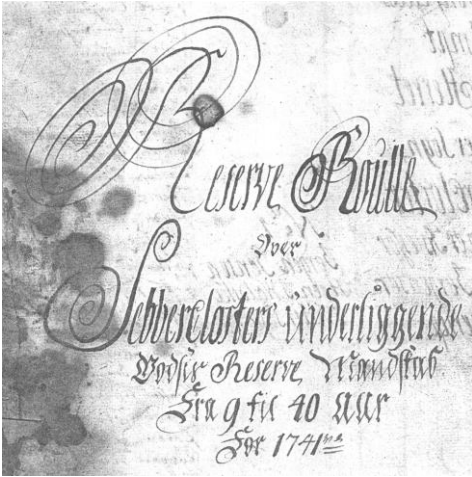 Reserve Roulle
Over
Sebberclosters underliggende
Godsis Reserve Mandskab
Fra 9 til 40 aar
For 1741